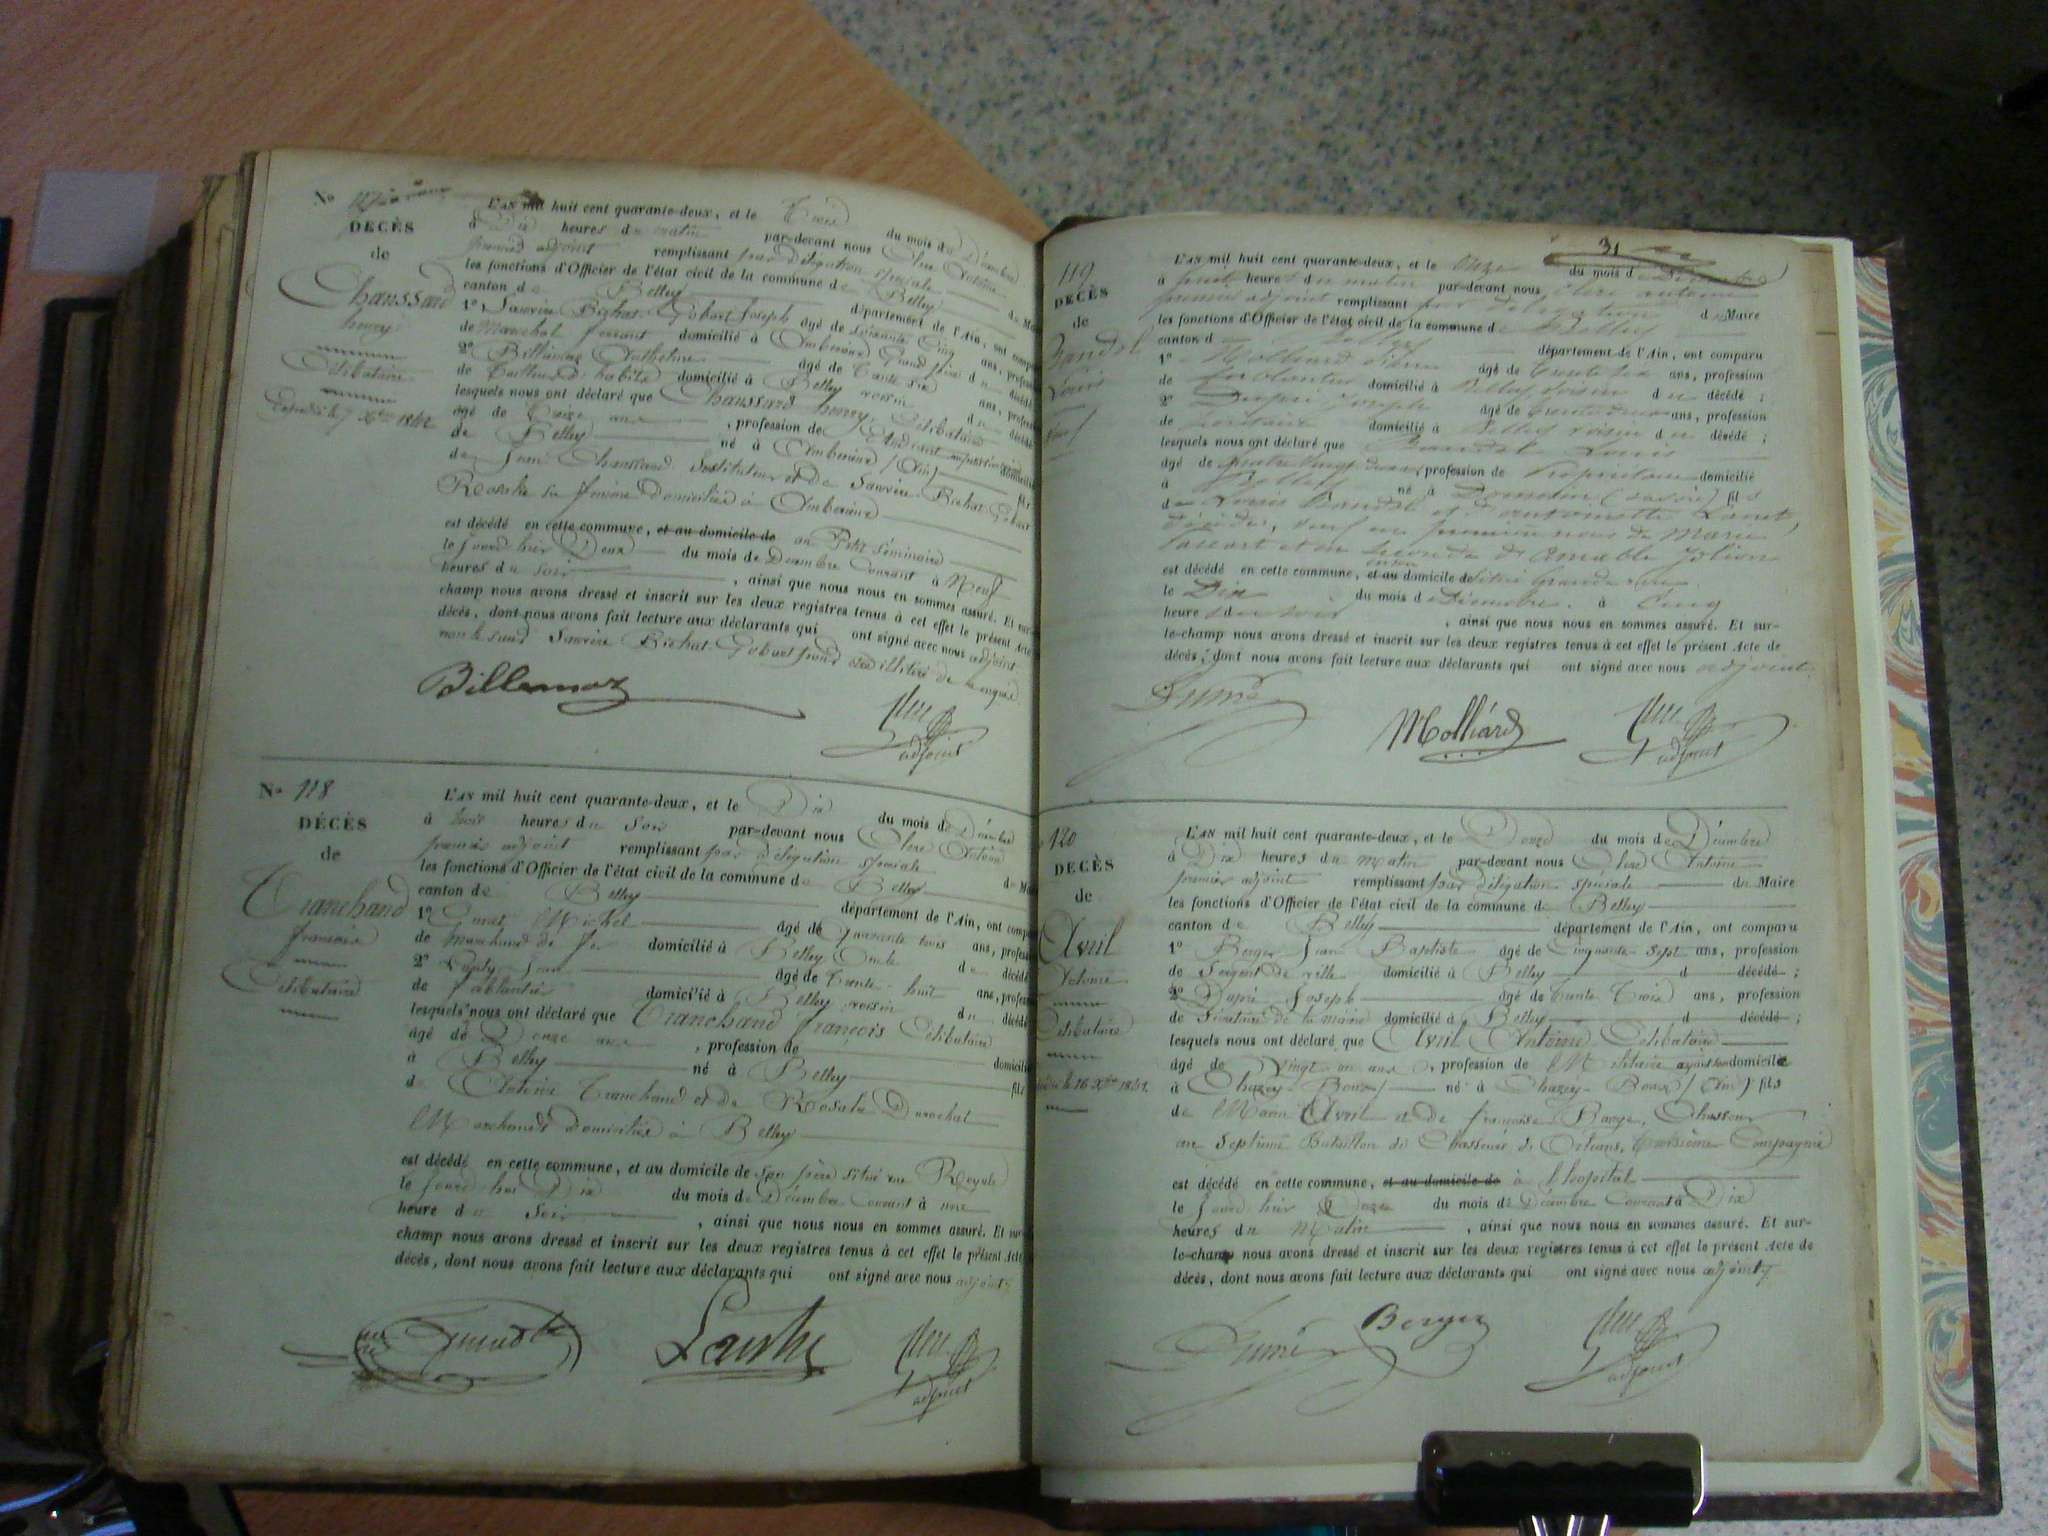 No 117
DÉCÈS
de
Chaussard
henry
Célibataire
L'AN mil huit cent quarante-deux, et le Trois du mois de Décembre
à Dix heures du matin par-devant nous Clerc Antoine
premier adjoint remplissant par délégation spéciale du Maire
les fonctions d'Officier de l'état civil de la commune de Belley
canton de Belley département de l'Ain, ont comparu
1o Joseph âgé de soixante cinq ans, profession
de Maréchal ferrant domicilié à Ambérieux du décédé
2o Billemaz Anthelme âgé de trente six ans, profession
de domicilié à Belley voisin du décédé
lesquels nous ont déclaré que Chaussard henry, Célibataire
âgé de Treize ans, profession de Etudiant domicilié
de Belley né à Ambérieux (Ain) fils
de Jean Chaussard Instituteur et de
Rosalie sa femme domiciliés à Ambérieux
est décédé en cette commune, et au domicile de au Petit Séminaire
le jour d'hier Deux du mois de Décembre Courant à Neuf
heures du soir, ainsi que nous nous en sommes assuré. Et sur-
champ nous avons dressé et inscrit sur les deux registres tenus à cet effet le présent Acte
décès, dont nous avons fait lecture aux déclarants qui ont signé avec nous adjoint
Billemaz
adjoint
No 118
DÉCÈS
de
Tranchand
françois
Célibataire
L'AN mil huit cent quarante-deux, et le Dix du mois de Décembre
à trois heures du Soir par-devant nous Clerc Antoine
premier adjoint remplissant par délégation spéciale du Maire
les fonctions d'Officier de l'état civil de la commune de Belley
canton de Belley département de l'Ain, ont comparu
1o Michel âgé de quarante trois ans, profession
de Marchand de fer domicilié à Belley Oncle du décédé
2o Jean âgé de trente huit ans, profession
de ferblantier domicilié à Belley voisin du décédé
lesquels nous ont déclaré que Tranchand françois Célibataire
âgé de Onze ans, profession de domicilié
à Belley né à Belley fils
de Antoine Tranchand et de Rosalie Durochat
Marchands domiciliés à Belley
est décédé en cette commune, et au domicile de son père situé rue Royale
le jour d'hui Dix du mois de Décembre Courant à une
heure du Soir, ainsi que nous nous en sommes assuré. Et sur
champ nous avons dressé et inscrit sur les deux registres tenus à cet effet le présent Acte
décès, dont nous avons fait lecture aux déclarants qui ont signé avec nous adjoint
adjoint
31
119
DÉCÈS
de
Louis
L'AN mil huit cent quarante-deux, et le Onze du mois de Décembre
à heures du matin par-devant nous Clerc antoine
premier adjoint remplissant par délégation du Maire
les fonctions d'Officier de l'état civil de la commune de Belley
canton de Belley département de l'Ain, ont comparu
1o Molliard âgé de trente six ans, profession
de ferblantier domicilié à Belley voisin du décédé ;
2o Dupré Joseph âgé de trente deux ans, profession
de Sécrétaire domicilié à Belley voisin du décédé ;
lesquels nous ont déclaré que Louis
âgé de quatre vingt deux, profession de Propriétaire domicilié
à Belley né à Domessin (Savoie) fils
de Louis et d'antoinette
décédés, veuf en première noces de Marie
et en seconde d'Aimable
est décédé en cette commune, et au domicile de situé Grande rue
le Dix du mois de Décembre à Cinq
heures du soir, ainsi que nous nous en sommes assuré. Et sur-
le-champ nous avons dressé et inscrit sur les deux registres tenus à cet effet le présent Acte de
décès, dont nous avons fait lecture aux déclarants qui ont signé avec nous adjoint
Molliard
adjoint
120
DÉCÈS
de
Avril
Antoine
Célibataire
L'AN mil huit cent quarante-deux, et le Douze du mois de Décembre
à Dix heures du matin par-devant nous Clerc Antoine
premier adjoint remplissant par délégation spéciale du Maire
les fonctions d'Officier de l'état civil de la commune de Belley
canton de Belley département de l'Ain, ont comparu
1o Berger Jean Baptiste âgé de Cinquante Sept ans, profession
de Sergent de ville domicilié à Belley d décédé ;
2o Dupré Joseph âgé de trente Trois ans, profession
de Sécrétaire de la mairie domicilié à Belley d décédé ;
lesquels nous ont déclaré que Avril Antoine Célibataire
âgé de Vingt un ans, profession de Militaire ayant son domicile
à Chazey-Bons né à Chazey-Bons (Ain) fils
de Avril et de françoise Barge, Chasseur
au Septième Bataillon de Chasseurs d'Orléans, troisième Compagnie
est décédé en cette commune, et au domicile de à l'hopital
le jour d'hier Onze du mois de Décembre Courant à Dix
heures du Matin, ainsi que nous nous en sommes assuré. Et sur-
le-champ nous avons dressé et inscrit sur les deux registres tenus à cet effet le présent Acte de
décès, dont nous avons fait lecture aux déclarants qui ont signé avec nous adjoint
Berger
adjoint